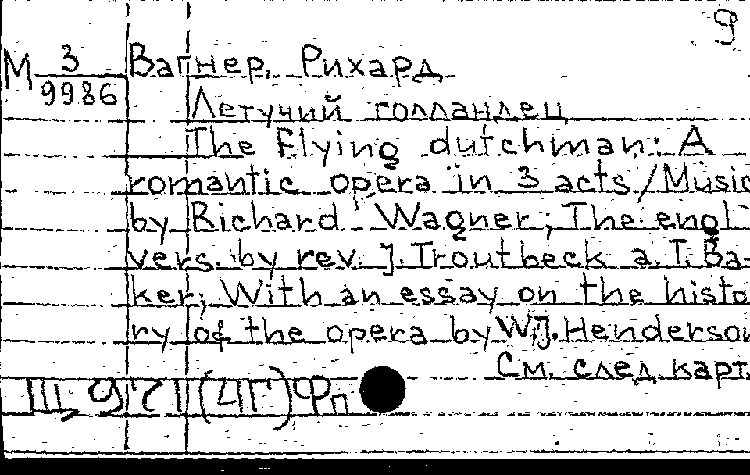 9
М 3/9986
Вагнер, Рихард
Летучий голландец
The flying dutchman: A
romantic opera in 3 acts / Music
by Richard Wagner; The engl
vers. by rev. J. Troutbeck a. T. Ba-
ker; With an essay on the histo
ry of the opera by W.J. Henderson
См. след. карт.
Щ 971(4Г)Фп